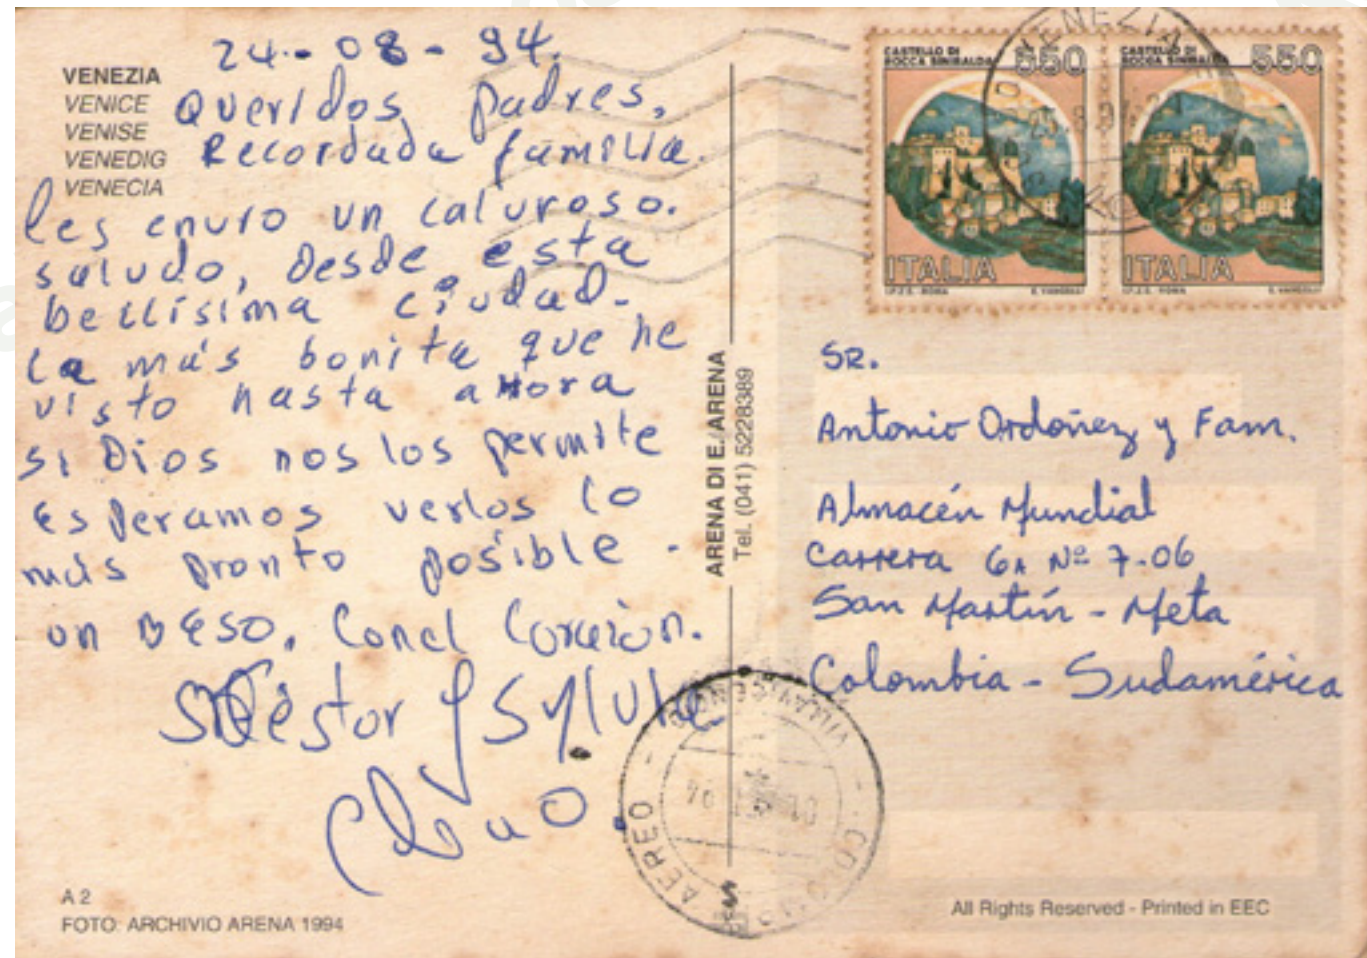 24-08-94.
VENEZIA
VENICE
VENISE
VENEDIG
VENECIA
Queridos padres,
Recordada familia.
les envio un caluroso.
saludo, desde esta
bellísima ciudad-
La más bonita que he
visto hasta ahora
si Dios nos los permite
esperamos verlos lo
más pronto posible-
un BESO. Con el Corazón.
Néstor y Sylvia
Chao.
A 2
FOTO: ARCHIVIO ARENA 1994
ARENA DI E. ARENA
Tel. (041) 5228389
CASTELLO DI
ROCCA SINIBALDA 550
ITALIA
I.P.Z.S. - ROMA E. VANGELLI
CASTELLO DI
ROCCA SINIBALDA 550
ITALIA
I.P.Z.S. - ROMA E. VANGELLI
VENEZIA
SR.
Antonio Ordoñez y Fam.
Almacén Mundial
Carrera 6A Nº 7-06
San Martín - Meta
Colombia - Sudamérica
AEREO
VILLAVICENCIO
All Rights Reserved - Printed in EEC